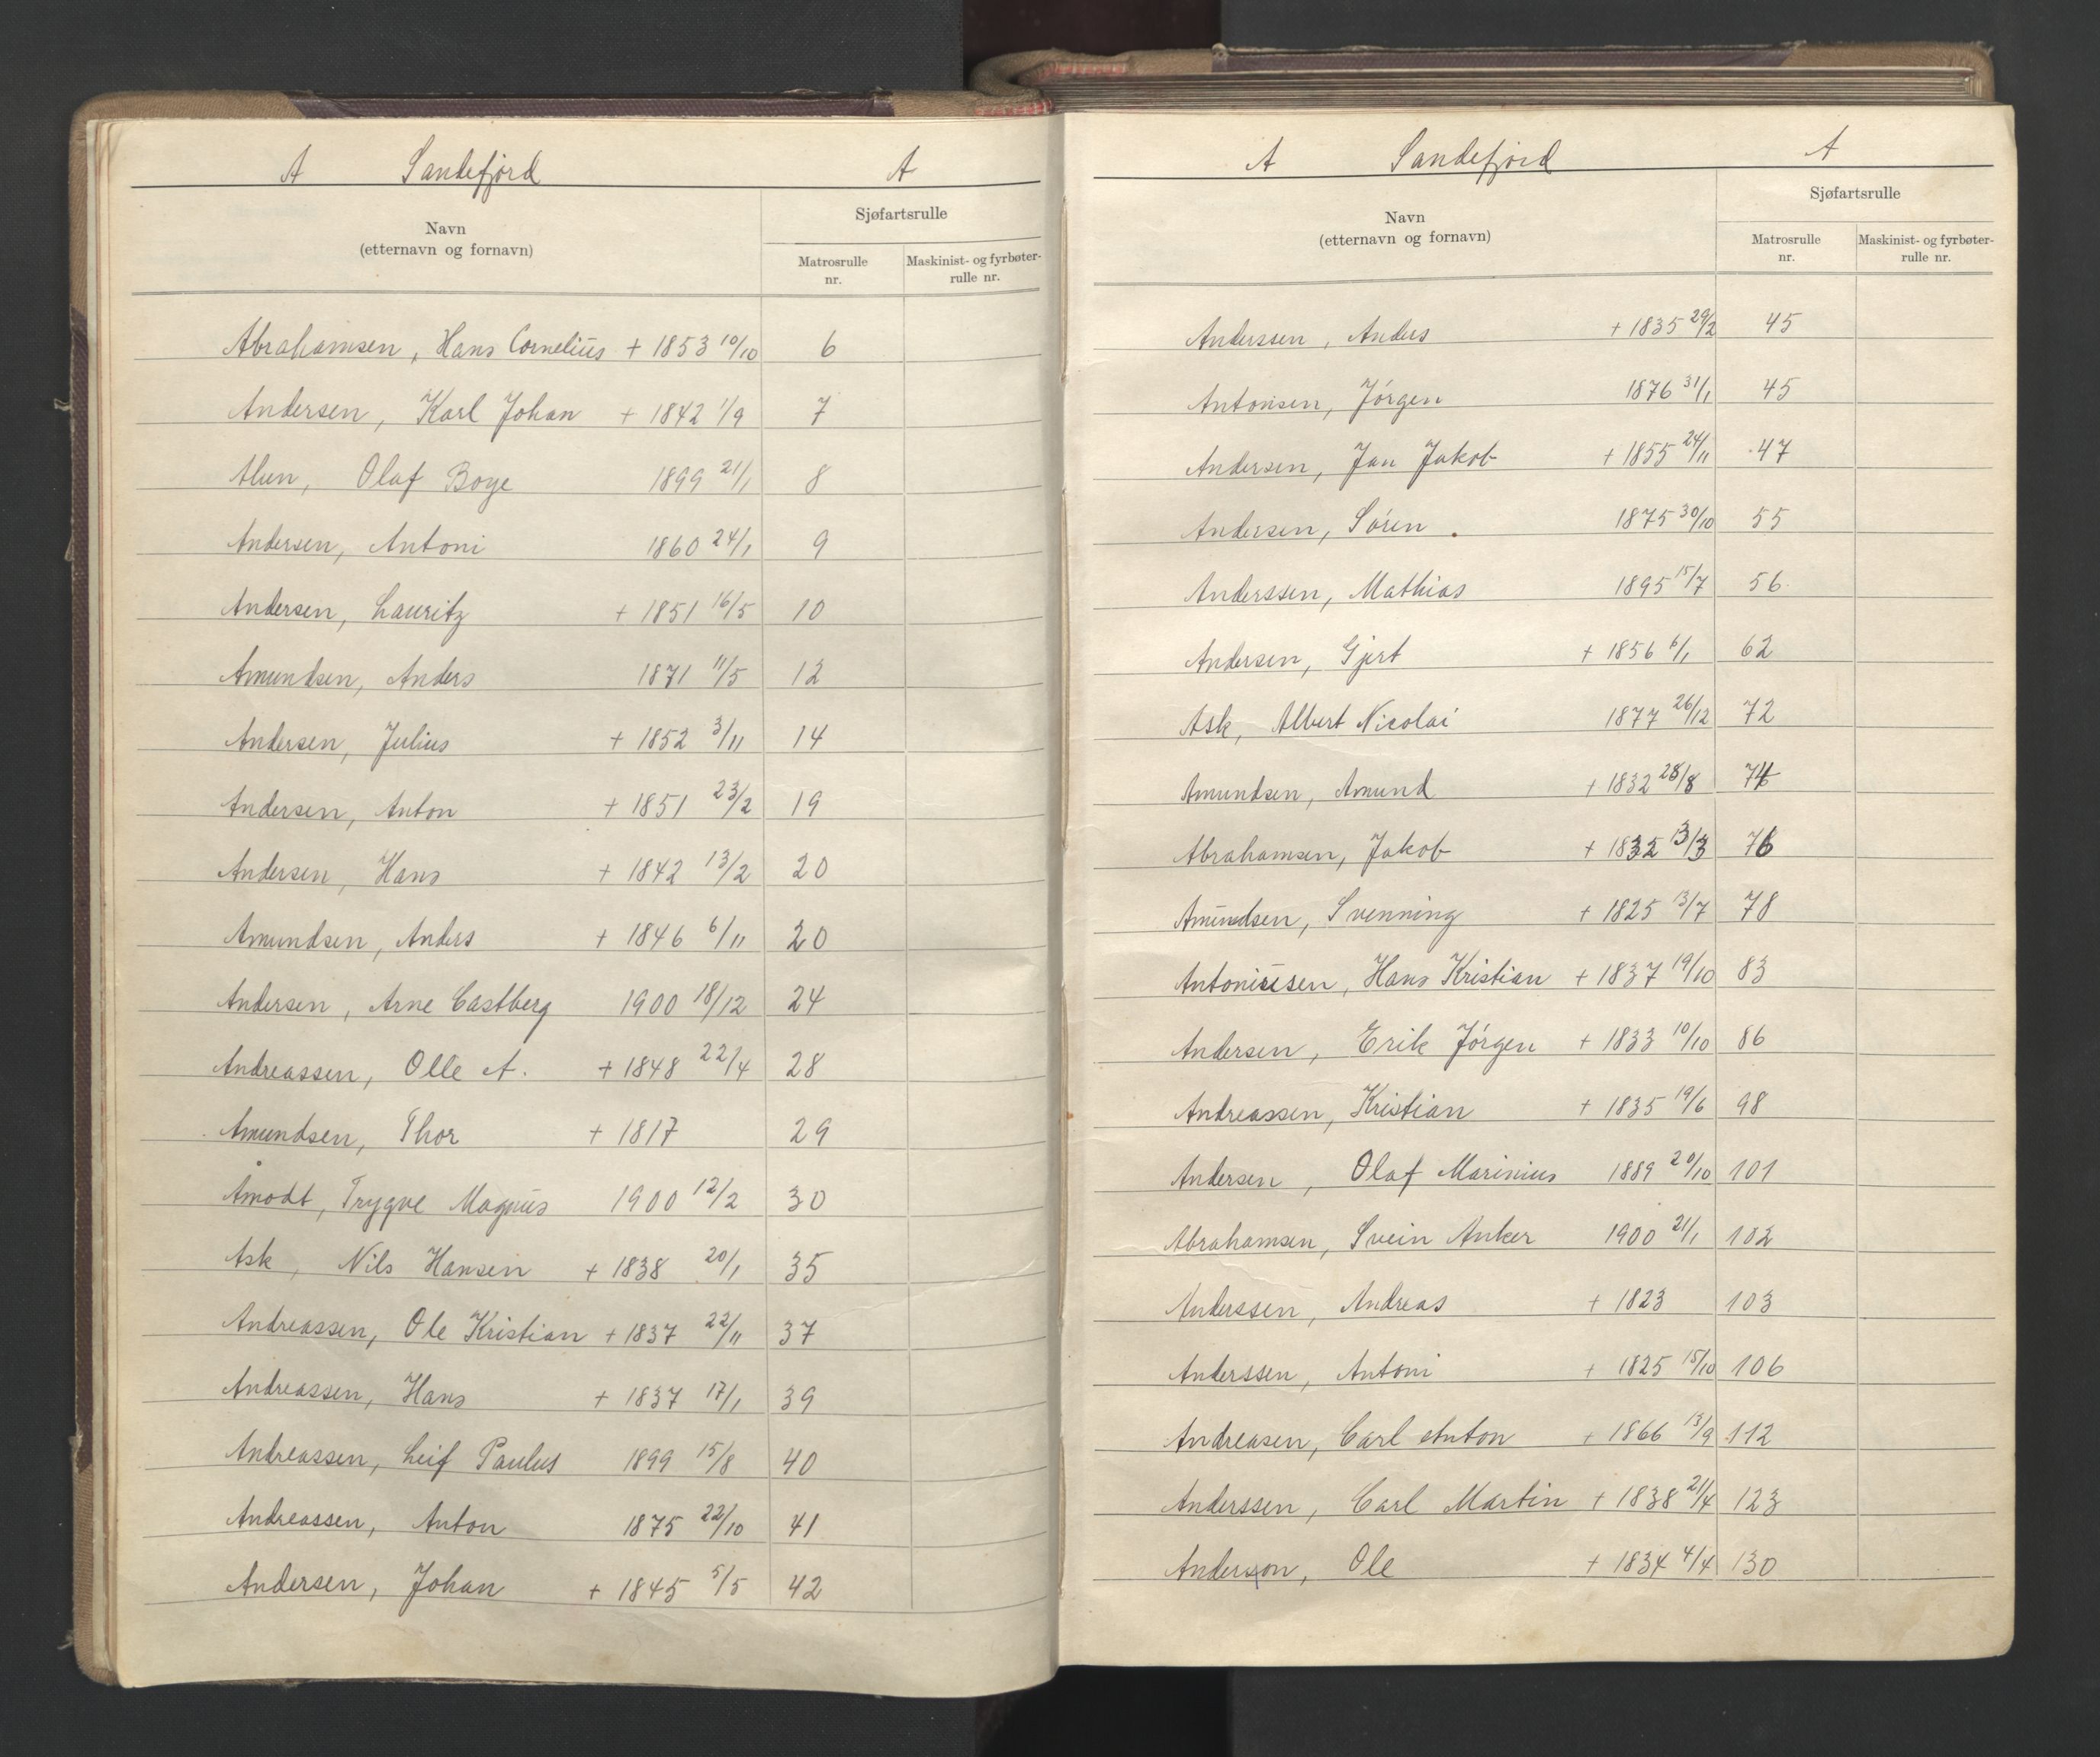 A Sandefjord A
Navn
(etternavn og fornavn)
Sjøfartsrulle
Matrosrulle
nr.
Maskinist- og fyrbøter-
rulle nr.
Abrahamsen, Hans Cornelius + 1853 10/10 6
Andersen, Karl Johan + 1842 1/9 7
Alun, Olaf Boye 1899 21/1 8
Andersen, Antoni 1860 24/1 9
Andersen, Lauritz + 1851 16/5 10
Amundsen, Anders 1871 11/5 12
Andersen, Julius + 1852 3/11 14
Andersen, Anton + 1851 23/2 19
Andersen, Hans + 1842 13/2 20
Amundsen, Anders + 1846 6/11 20
Andersen, Arne Castberg 1900 18/12 24
Andreassen, Olle A. + 1848 22/4 28
Amundsen, Thor + 1817 29
Åmodt, Trygve Magnus 1900 12/2 30
Ask, Nils Hansen + 1838 20/1 35
Andreassen, Ole Kristian + 1837 22/11 37
Andreassen, Hans + 1837 17/1 39
Andreassen, Leif Paulus 1899 15/8 40
Andreassen, Anton 1875 22/10 41
Andersen, Johan + 1845 5/5 42
A Sandefjord A
Navn
(etternavn og fornavn)
Sjøfartsrulle
Matrosrulle
nr.
Maskinist- og fyrbøter-
rulle nr.
Anderssen, Anders + 1835 29/2 45
Antonsen, Jörgen 1876 31/1 45
Andersen, Jan Jakob + 1855 24/11 47
Andersen, Sören 1875 30/10 55
Anderssen, Mathias 1895 15/7 56
Andersen, Gjert + 1856 6/1 62
Ask, Albert Nicolai 1877 26/12 72
Amundsen, Amund + 1832 28/8 74
Abrahamsen, Jakob + 1832 13/3 76
Amundsen, Svenning + 1825 13/7 78
Antonissen, Hans Kristian + 1837 19/10 83
Andersen, Erik Jörgen + 1833 10/10 86
Andreassen, Kristian + 1835 19/6 98
Andersen, Olaf Marinius 1889 20/10 101
Abrahamsen, Svein Anker 1900 21/1 102
Anderssen, Andreas + 1823 103
Anderssen, Antoni + 1825 15/10 106
Andreasen, Carl Anton + 1866 13/9 112
Anderssen, Carl Martin + 1838 21/4 123
Anderson, Ole + 1834 4/4 130